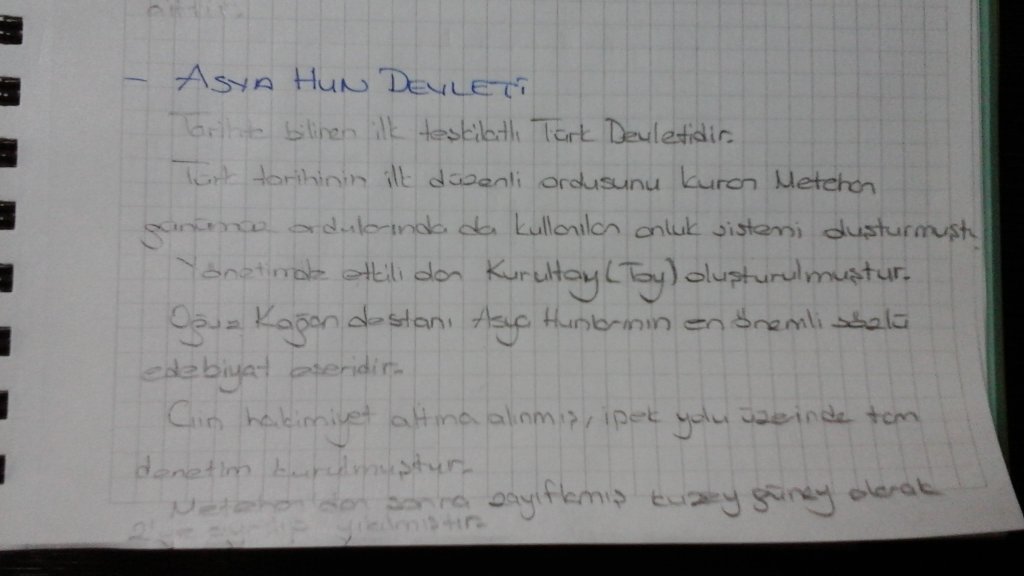 - ASYA HUN DEVLETİ
Tarihte bilinen ilk teşkilatlı Türk Devletidir.
Türk tarihinin ilk düzenli ordusunu kuran Metehan
günümüz ordularında da kullanılan onluk sistemi oluşturmuştur.
Yönetimde etkili olan Kurultay (Toy) oluşturulmuştur.
Oğuz Kağan destanı Asya Hunlarının en önemli sözlü
edebiyat eseridir.
Çin hakimiyet altına alınmış, ipek yolu üzeinde tam
denetim kurulmuştur.
Metehan'dan sonra zayıflamış kuzey güney olarak
2'ye ayrılıp yıkılmıştır.